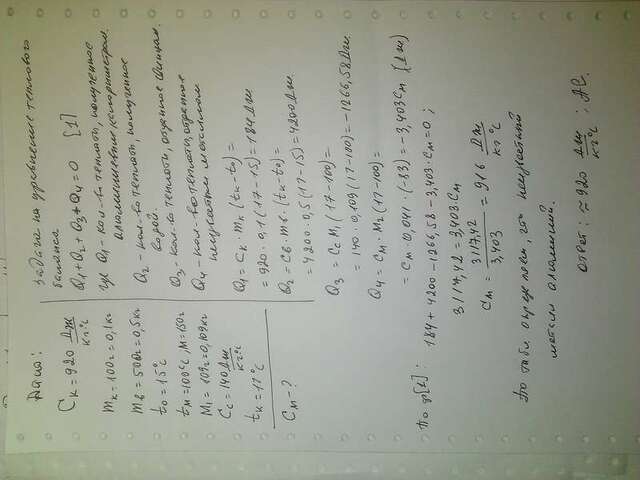 Дано:
Cк=920 Дж/кг·°С
mк=100г=0,1кг
mв=500г=0,5кг
t₀=15°С
tм=100°С, M=150г
M₁=109г=0,109кг
Cс=140 Дж/кг·°С
tк=17°С
Cм-?
Задача на уравнение теплового
баланса
Q₁+Q₂+Q₃+Q₄=0 [1]
где Q₁- кол-во теплоты, полученное
алюминиевым калориметром.
Q₂ - кол-во теплоты, полученное
водой.
Q₃ - кол-во теплоты, отданное свинцом.
Q₄ - кол-во теплоты, отданное
неизвестным металлом
Q₁=Cк·mк(tк-t₀)=
=920·0,1(17-15)=184Дж
Q₂=Cв·mв·(tк-t₀)=
=4200·0,5(17-15)=4200Дж.
Q₃=CсM₁(17-100)=
=140·0,109(17-100)=-1266,58Дж
Q₄=Cм·M₂(17-100)=
=Cм·0,041·(-83)=-3,403Cм (Дж)
По ф[1]: 184+4200-1266,58-3,403·Cм=0;
3117,42=3,403·Cм
Cм=3117,42/3,403=916 Дж/кг·°С
По табл. определяем, что неизвестный
металл алюминий.
Ответ: ≈920 Дж/кг·°С; Al.